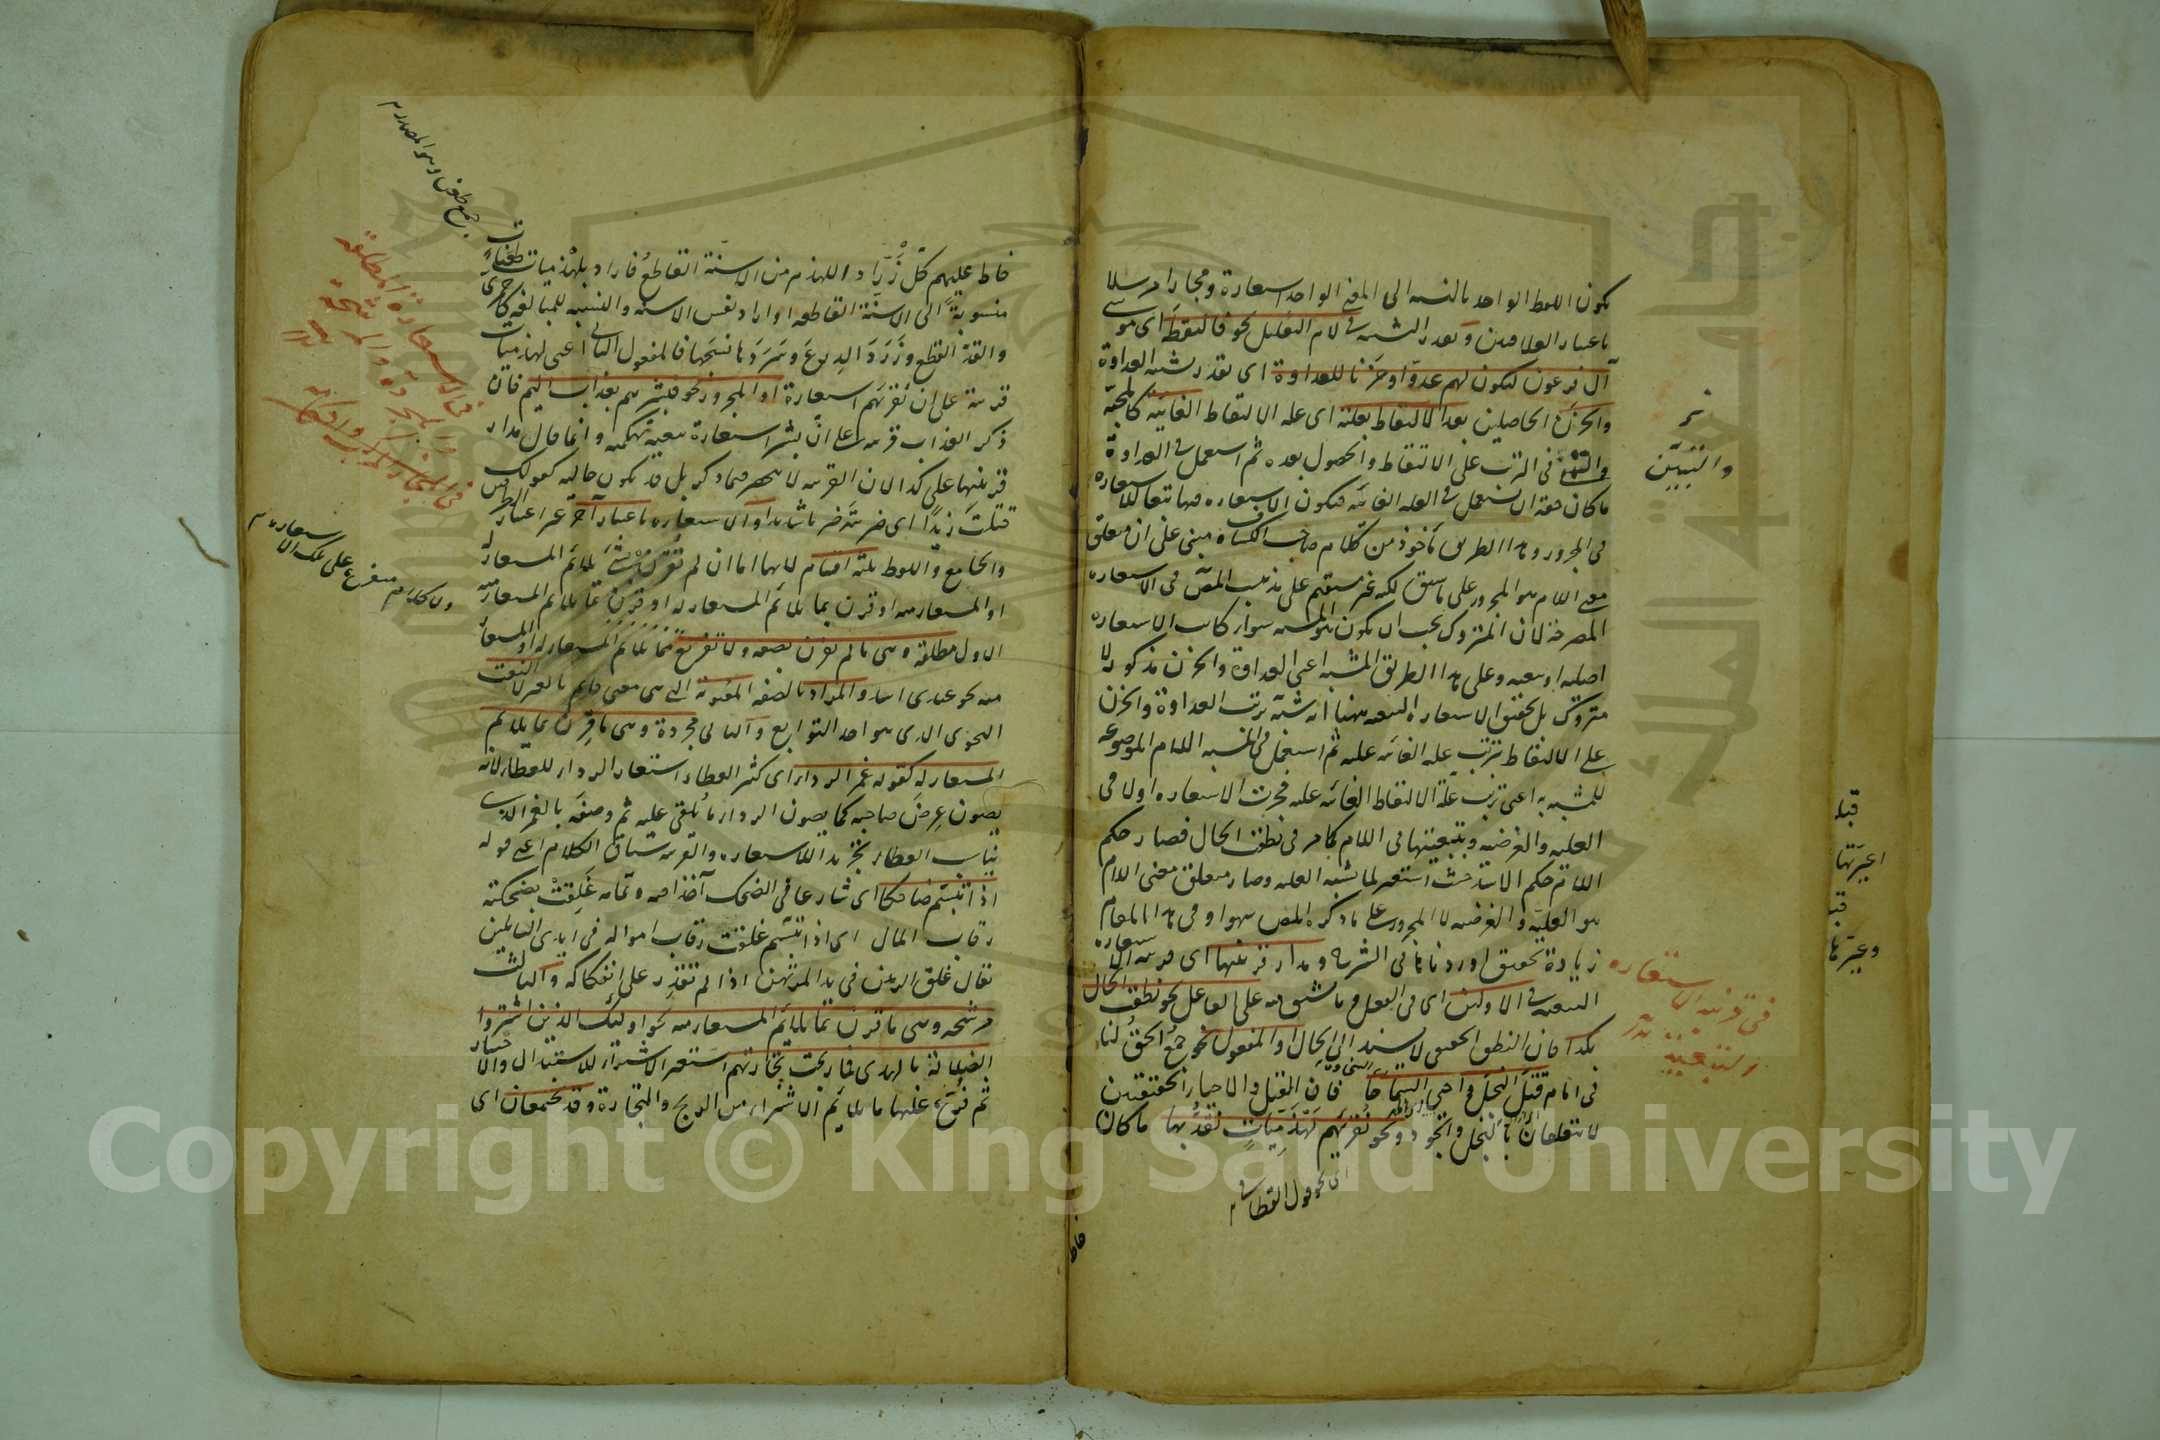 يكون اللفظ الواحد بالنسبة الى المعنى الواحد استعارة ومجازا مرسلا
باعتبار العلاقتين ويقدر التشبيه فى لام التعليل نحو فالتقطه اى موسى
آل فرعون ليكون لهم عدوا وحزنا للعداوة اى يقدر تشبيه العداوة
والحزن الحاصلين بعد الالتقاط بعلته اى علة الالتقاط الغائية كالمحبة
والتبنى فى الترتب على الالتقاط والحصول بعده ثم استعمل فى العداوة
ما كان حقه ان يستعمل فى العلة الغائية فيكون الاستعارة فيها تبعا للاستعارة
فى المجرور وهذا الطريق مأخوذ من كلام صاحب الكشاف مبنى على ان متعلق
معنى اللام هو المجرور على ما سبق لكنه غير مستقيم على مذهب المص فى الاستعارة
المصرحة لان المتروك يجب ان يكون هو المشبه سواء كانت الاستعارة
اصلية او تبعية وعلى هذا الطريق المشبه اعنى العداوة والحزن مذكور لا
متروك بل تحقيق الاستعارة التبعية ههنا انه شبه ترتب العداوة والحزن
على الالتقاط بترتب علة الغائية عليه ثم استعمل فى المشبه اللام الموضوعة
للمشبه به اعنى ترتب علة الالتقاط الغائية عليه فجرت الاستعارة اولا فى
العلية والغرضية وبتبعيتها فى اللام كما مر فى نطقت الحال فصار حكم
اللام حكم الاسد حيث استعير لما يشبه العلية وصار متعلق معنى اللام
هو العلية والغرضية لا المجرور على ما ذكره المص سهوا وفى هذا المقام
زيادة تحقيق اوردناها فى الشرح ومدار قرينتها اى قرينة الاستعارة
التبعية فى الاولين اى فى الفعل وما يشتق منه على الفاعل نحو نطقت الحال
بكذا فان النطق الحقيقى لا يسند الى الحال او المفعول نحو جمع الحق لنا
فى امام قتل البخل واحيى السماحا فان القتل والاحياء الحقيقيين
لا يتعلقان بالبخل والجود ونحو نقريهم لهذميات نقد بها ما كان
اى نحو قول القطامى
والتبنى
فى قرينة الاستعارة
التبعية
خاط
خاط عليهم كل زراد اللهذم من الاسنة القاطع فاراد بلهذميات طعنات
منسوبة الى الاسنة القاطعة او اراد نفس الاسنة والنسبة للمبالغة كاحمرى
والقد القطع وزرد الدرع وسردها نسجها فالمفعول الثانى اعنى لهذميات
قرينة على ان نقريهم استعارة او المجرور نحو فبشرهم بعذاب اليم فان
ذكر العذاب قرينة على ان بشر استعارة تبعية تهكمية وانما قال مدار
قرينتها على كذا لان القرينة لا تنحصر فيما ذكر بل قد تكون حالية كقولك
قتلت زيدا اى ضربته ضربا شديدا والاستعارة باعتبار آخر غير اعتبار الطرفين
والجامع واللفظ ثلثة اقسام لانها اما ان لم تقرن بشئ يلائم المستعار له
او المستعار منه او قرن بما يلائم المستعار له او قرن بما يلائم المستعار منه
الاول مطلقة وهى ما لم تقرن بصفة ولا تفريع مما يلائم المستعار له او المستعار
منه نحو عندى اسد والمراد بالصفة المعنوية التى هى معنى قائم بالغير لا النعت
النحوى الذى هو احد التوابع والثانى مجردة وهى ما قرن بما يلائم
المستعار له كقوله غمر الرداء اى كثير العطاء استعار الرداء للعطاء لانه
يصون عرض صاحبه كما يصون الرداء ما يلقى عليه ثم وصفه بالغمر الذى
يناسب العطاء تجريدا للاستعارة والقرينة سياق الكلام اعنى قوله
اذا تبسم ضاحكا اى شارعا فى الضحك آخذا فيه وتمامه غلقت بضحكته
رقاب المال اى اذا تبسم غلقت رقاب امواله فى ايدى السائلين
يقال غلق الرهن فى يد المرتهن اذا لم يقدر على انفكاكه والثالث
مرشحة وهى ما قرن بما يلائم المستعار منه نحو اولئك الذين اشتروا
الضلالة بالهدى فما ربحت تجارتهم استعير الاشتراء للاستبدال والاختيار
ثم فرع عليها ما يلائم الاشتراء من الربح والتجارة وقد تجتمعان اى
فى الاستعارة المطلقة
والمجردة والمرشحة
ولا كلام متفرع على تلك الاستعارة
قبله
Copyright © King Saud University